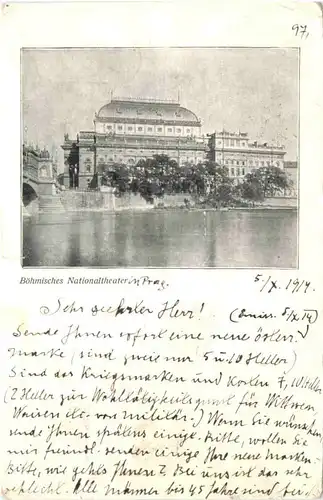 97,
Böhmisches Nationaltheater in Prag.
5/X. 1914.
Sehr geehrter Herr! (5/X 14)
Sende Ihnen sofort eine neue österr.
marke (sind zwei nur 5 u 10 Heller)
Sind das Kriegsmarken und kosten 7, Heller
(2 Heller zur Wohltätigkeit für Witwen,
Waisen etc. vor militär.) Wenn Sie wünschen
sende Ihnen spätens einige. Bitte, wollen Sie
mir freundl. senden einige Ihre neue Marken.
Bitte, wie gehts Ihnen? Bei uns ist das sehr
schlecht. Alle männer bis 45 Jahre sind